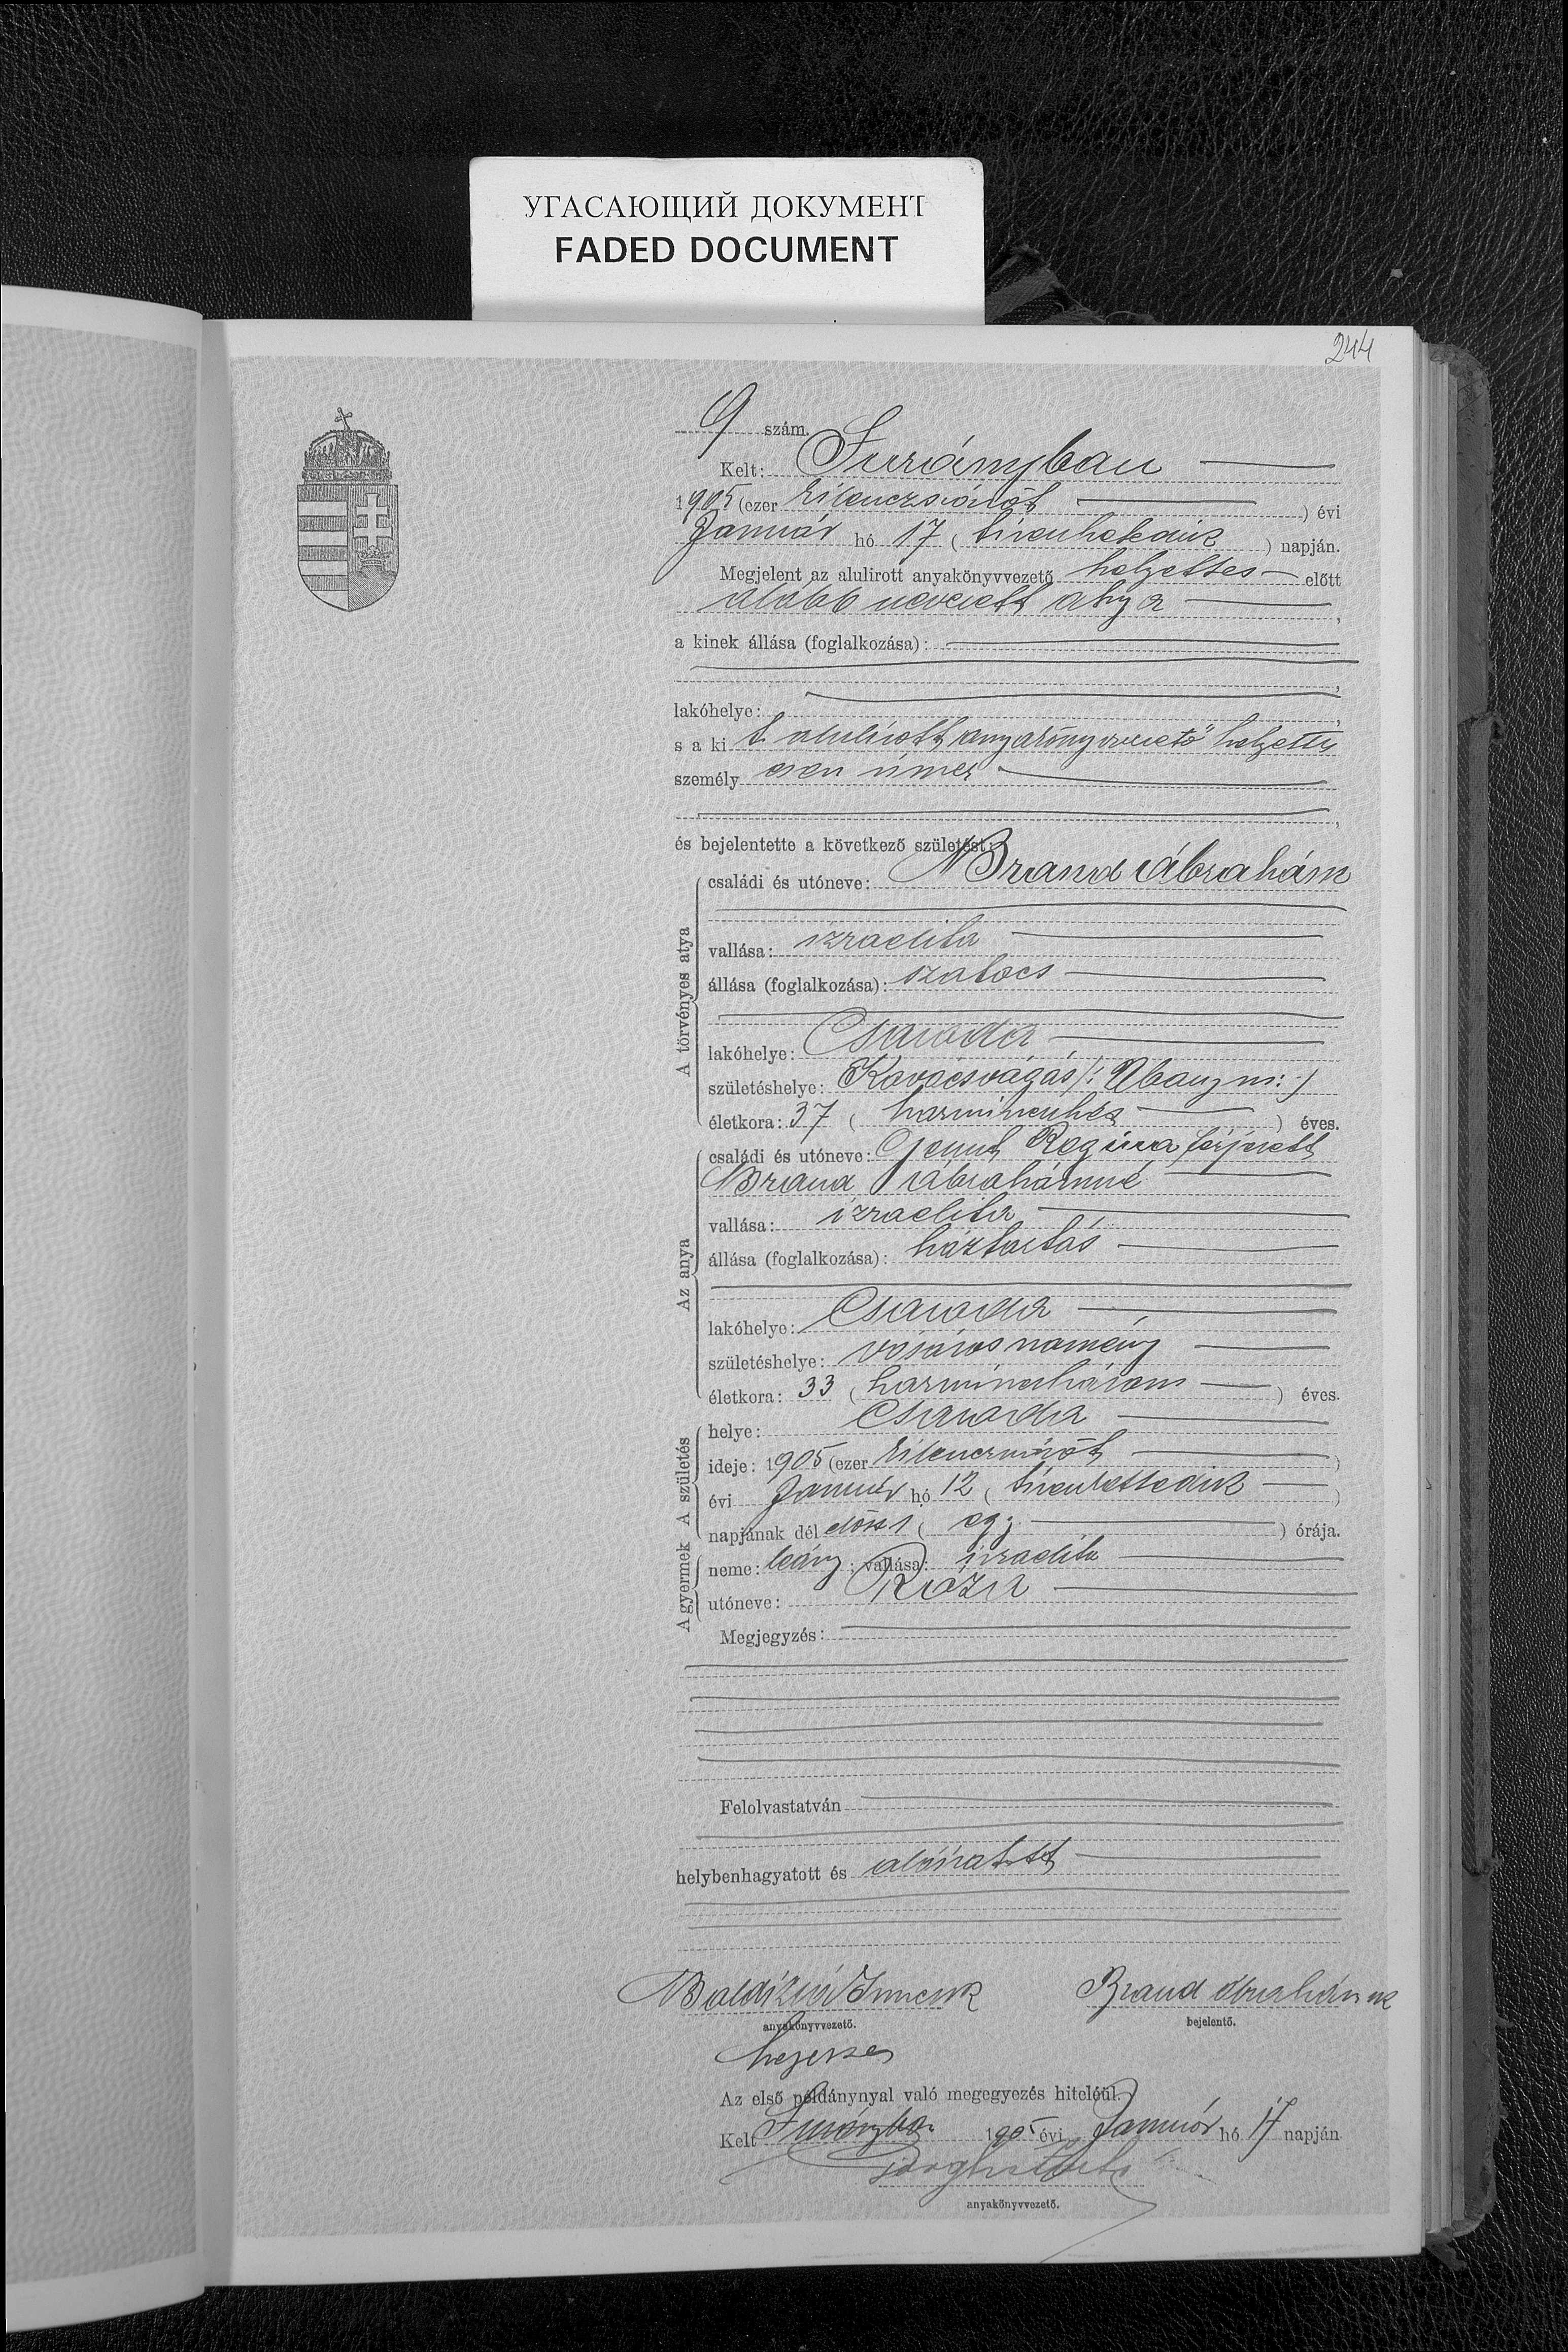 УГАСАЮЩИЙ ДОКУМЕНТ
FADED DOCUMENT
244
9 szám.
Kelt: Surányban
1905 (ezer kilenczszázöt ) évi
Január hó 17 ( tizenhetedik ) napján.
Megjelent az alulirott anyakönyvvezető helyettes előtt
alább nevezett atya ,
a kinek állása (foglalkozása):
,
lakóhelye: ,
s a ki t alulírott anyakönyvvezető helyettes
személy esen ismer
,
és bejelentette a következő születést:
A törvényes atya
családi és utóneve: Brand Ábrahám
vallása: izraelita
állása (foglalkozása): szatócs
lakóhelye: Csaroda
születéshelye: Kovácsvágás /: Abauj m: /
életkora: 37 ( harminczhét ) éves.
Az anya
családi és utóneve: Regina férjezett
Brand Ábrahámné
vallása: izraelita
állása (foglalkozása): háztartás
lakóhelye: Csaroda
születéshelye: Vásárosnamény
életkora: 33 ( harminczhárom ) éves.
A születés
helye: Csaroda
ideje: 1905 (ezer kilenczszázöt )
évi Január hó 12 ( tizenkettedik )
napjának dél előtt 1 ( egy ) órája.
A gyermek
neme: leány ; vallása: izraelita
utóneve: Róza
Megjegyzés:
Felolvastatván
helybenhagyatott és aláíratott
Baldizsár Brand Ábrahám
anyakönyvvezető. bejelentő.
Az első példánynyal való megegyezés hiteléül.
Kelt 1905 évi Január hó 17 napján
anyakönyvvezető.